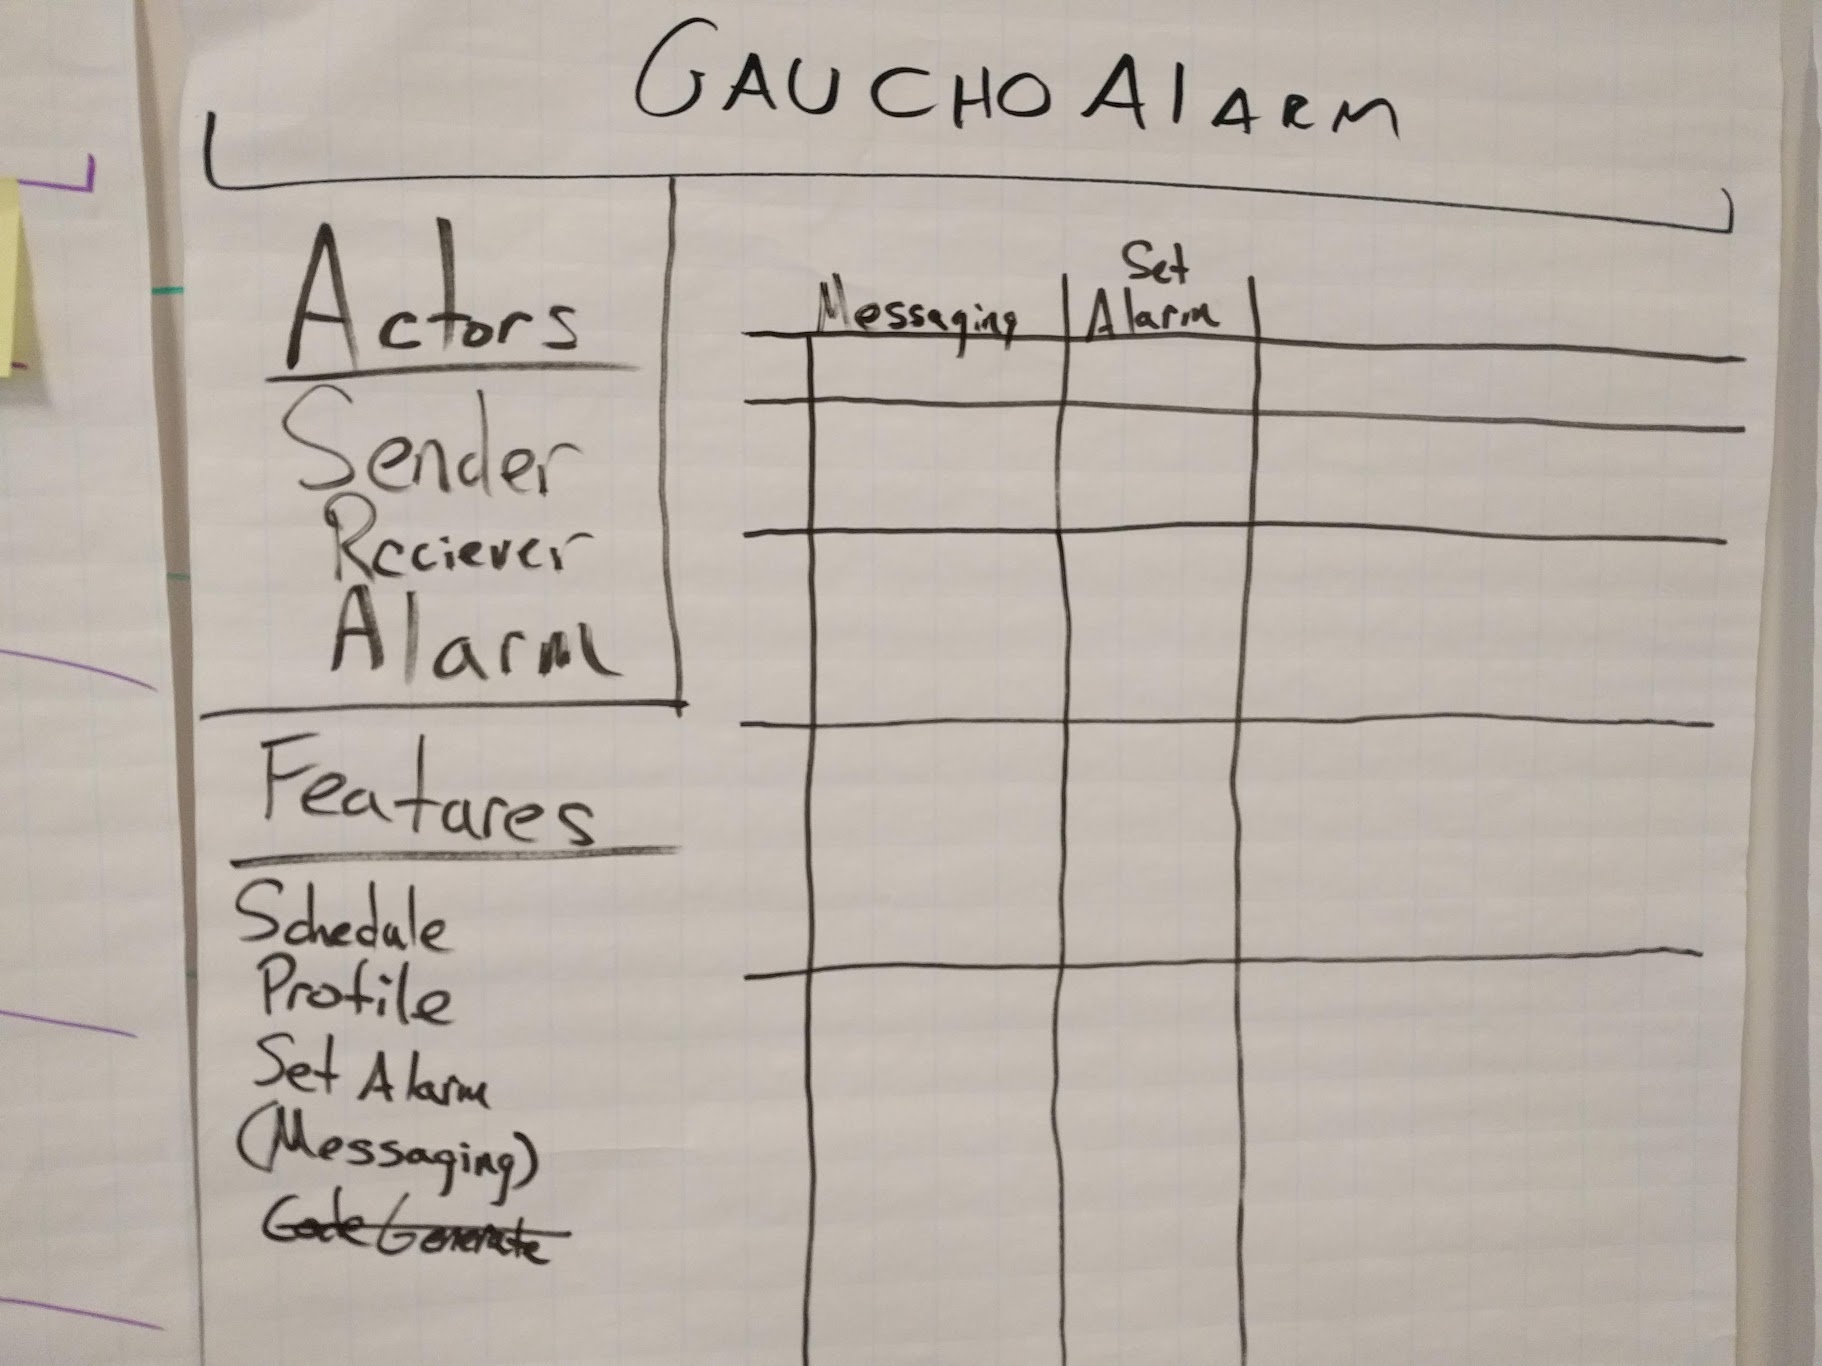 GAUCHO AlARM
Actors
Sender
Reciever
Alarm
Features
Schedule
Profile
Set Alarm
(Messaging)
Code Generate
Messaging
Set
Alarm